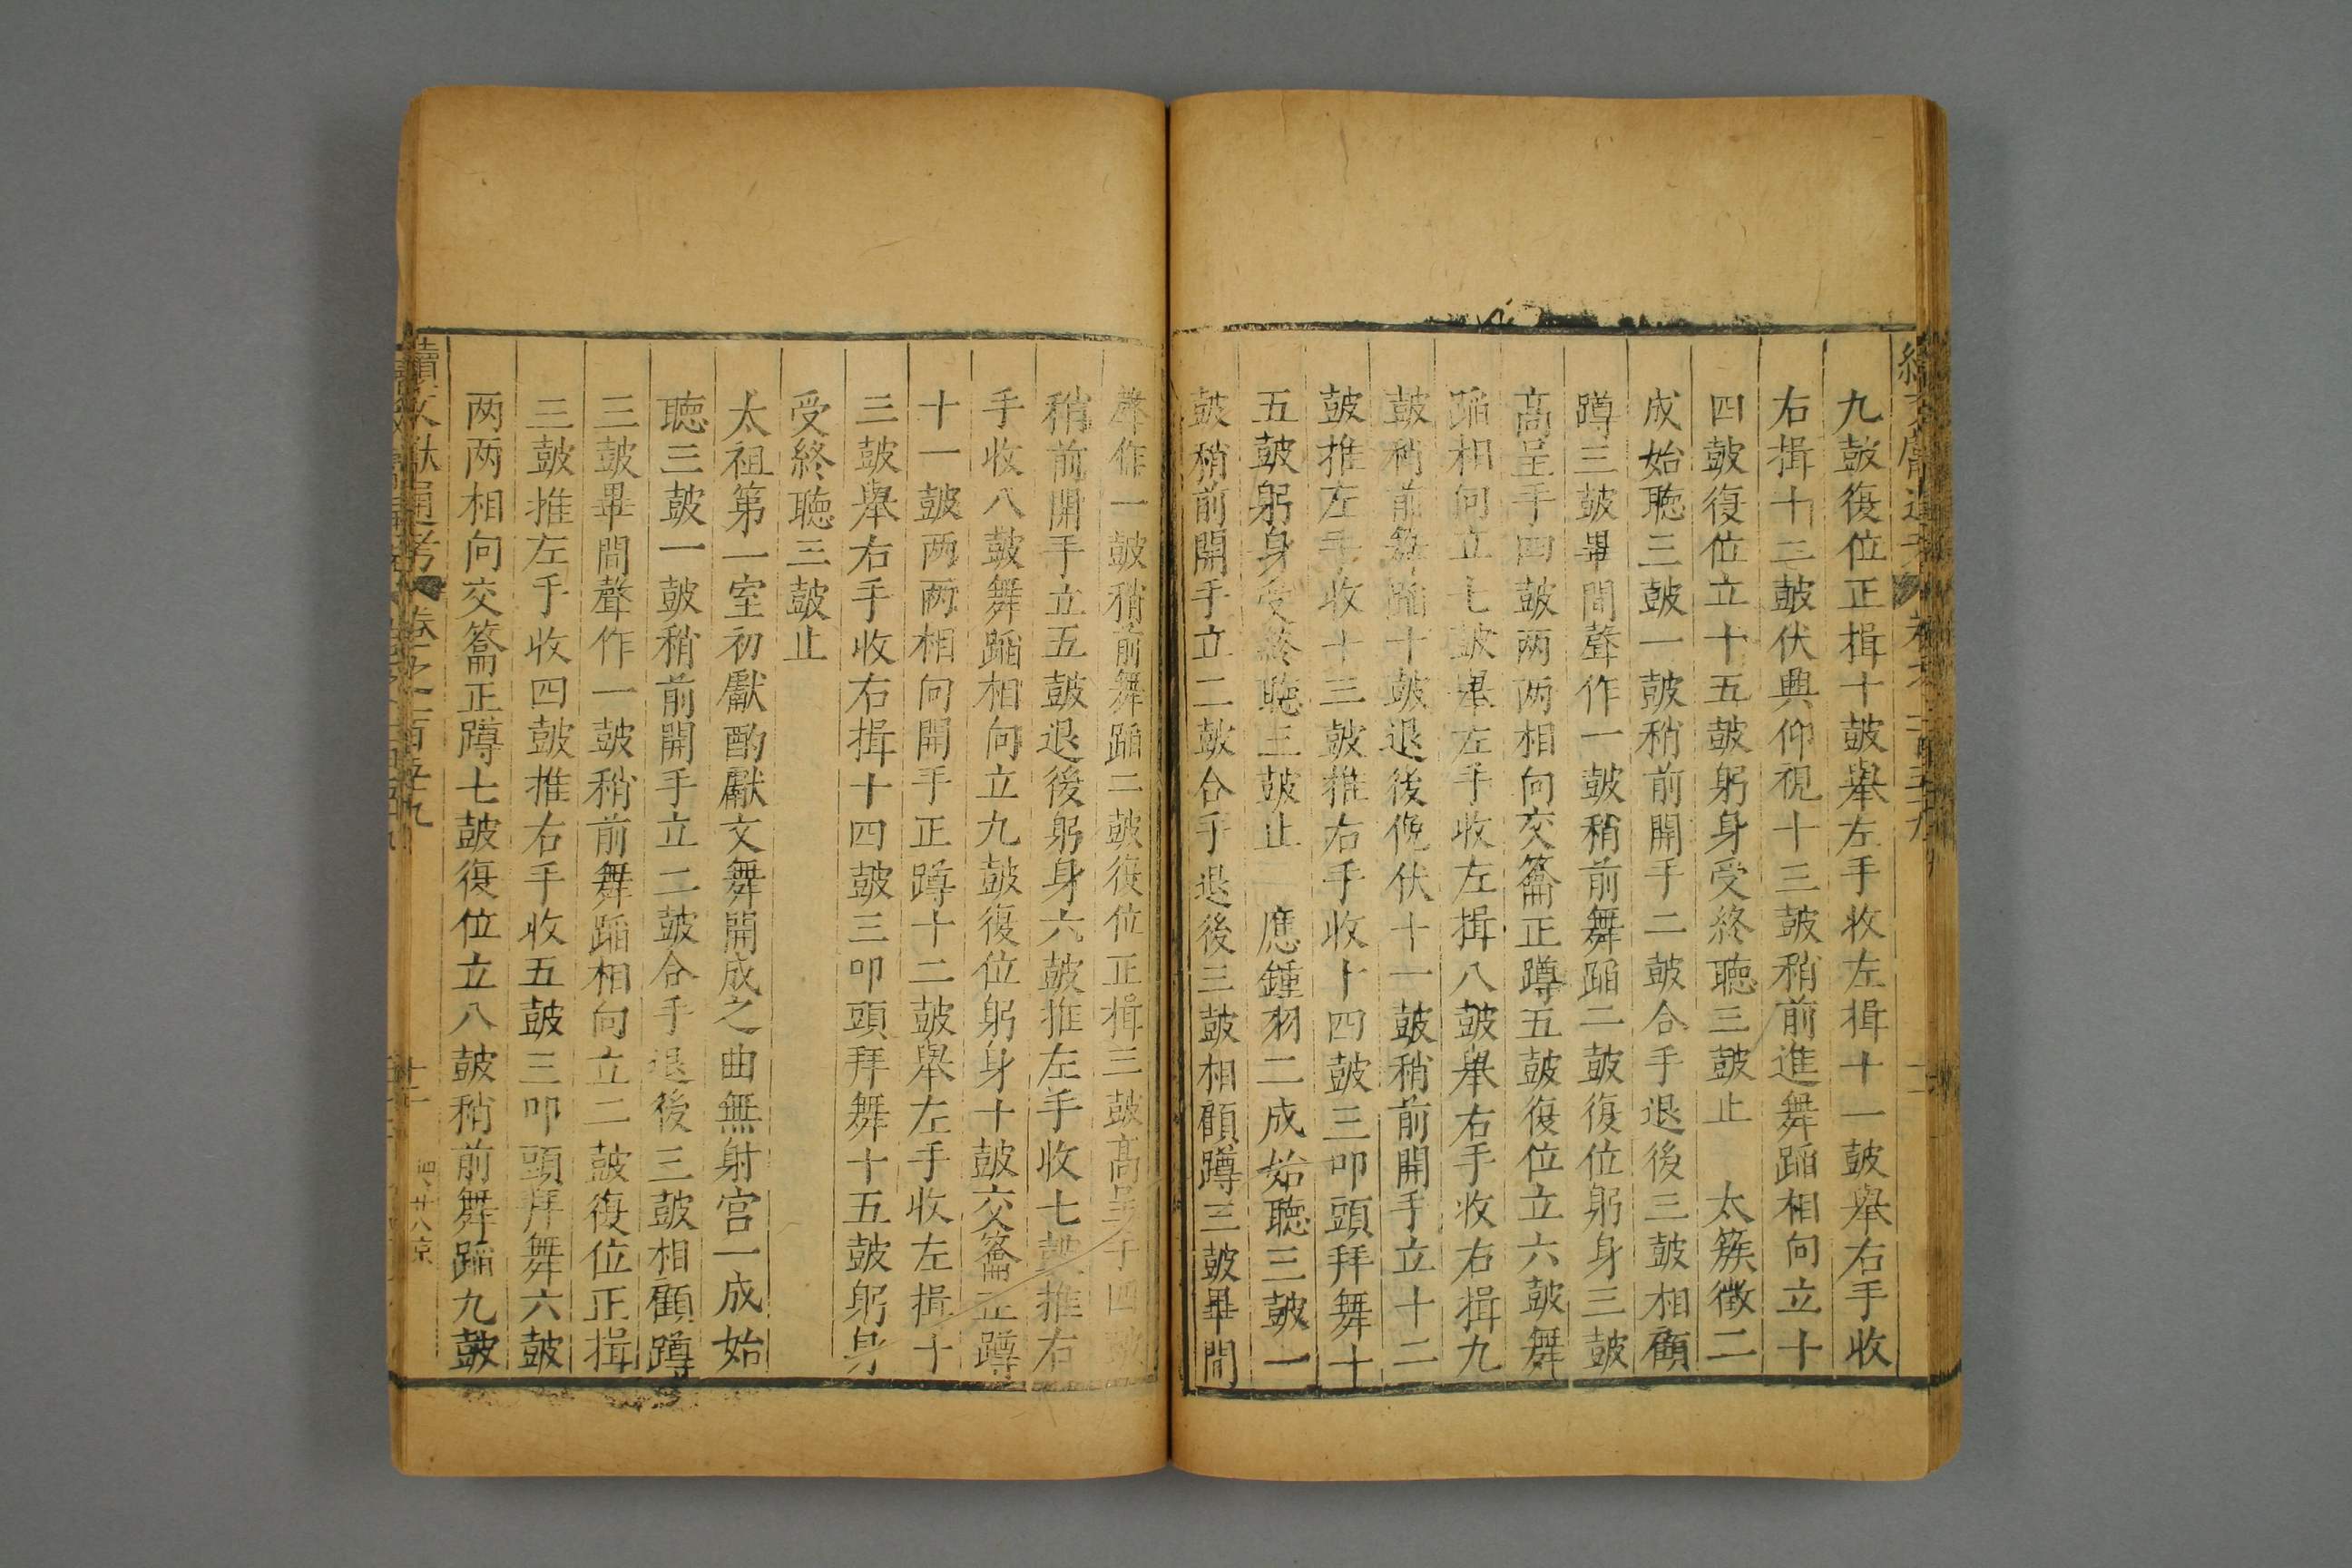 九鼔復位正揖十鼔舉左手收左揖十一鼔舉右手收
右揖十二鼔伏興仰視十三鼔稍前進舞蹈相向立十
四鼔復位立十五鼔躬身受終聽三鼔止　太簇徵二
成始聽三鼔一鼔稍前開手二鼔合手退後三鼔相顧
蹲三鼔畢間聲作一鼔稍前舞蹈二鼔復位躬身三鼔
高呈手四鼔两两相向交籥正蹲五鼔復位立六鼔舞
蹈相向立七鼔舉左手收左揖八鼔舉右手收右揖九
鼔稍前舞蹈十鼔退後俛伏十一鼔稍前開手立十二
鼔推左手收十三鼔推右手收十四鼔三叩頭拜舞十
五鼔躬身受終聽三鼔止　應鍾羽二成始聽三鼔一
鼔稍前開手立二鼔合手退後三鼔相顧蹲三鼔畢間
聲作一鼔稍前舞蹈二鼔復位正揖三鼔高呈手四鼔
稍前開手立五鼔退後躬身六鼔推左手收七鼔推右
手收八鼔舞蹈相向立九鼔復位躬身十鼔交籥正蹲
十一鼔两两相向開手正蹲十二鼔舉左手收左揖十
三鼔舉右手收右揖十四鼔三叩頭拜舞十五鼔躬身
受終聽三鼔止
太祖第一室初獻酌獻文舞開成之曲無射宫一成始
聽三鼔一鼔稍前開手立二鼔合手退後三鼔相顧蹲
三鼔畢間聲作一鼔稍前舞蹈相向立二鼔復位正揖
三鼔推左手收四鼔推右手收五鼔三叩頭拜舞六鼔
两两相向交籥正蹲七鼔復位立八鼔稍前舞蹈九鼔
續文獻通考　卷之一百五十九　十二